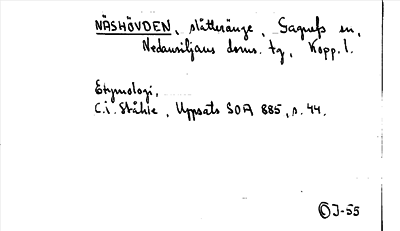 NÄSHÖVDEN, slåtteränge, Sagnefs en,
Nedansiljans doms. tg, Kopp. l.
Etymologi,
C. i. Ståhle, Uppsats SOA 885, s. 44.
J-55